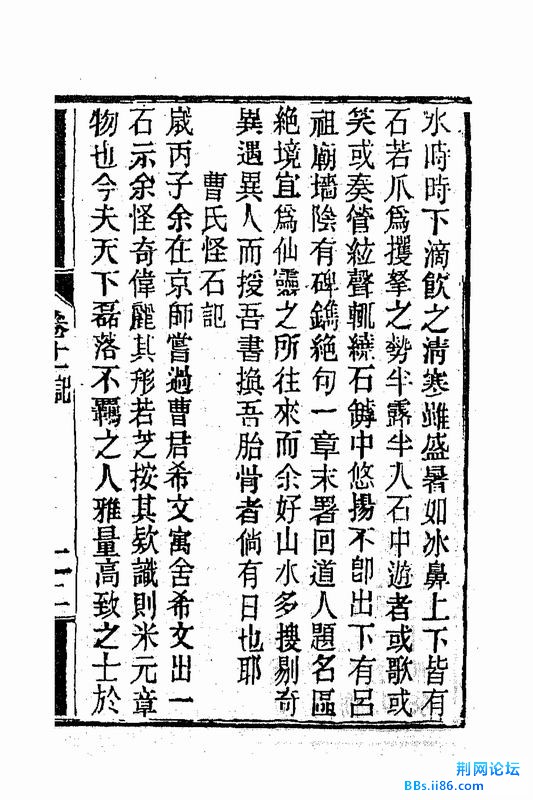 水時時下滴飲之淸寒雖盛暑如冰鼻上下皆有
石若爪爲攫拏之勢半露半入石中遊者或歌或
笑或奏管絃聲輒繞石罅中悠揚不卽出下有呂
祖廟墻陰有碑鐫絶句一章末署回道人題名區
絶境宜爲仙靈之所往來而余好山水多搜剔奇
異遇異人而授吾書換吾胎骨者倘有日也耶
曹氏怪石記
歲丙子余在京師嘗過曹君希文寓舍希文出一
石示余怪奇偉麗其形若芝按其欵識則米元章
物也今夫天下磊落不羈之人雅量高致之士於
卷十一記
二二
荆网论坛
BBs.ii86.com